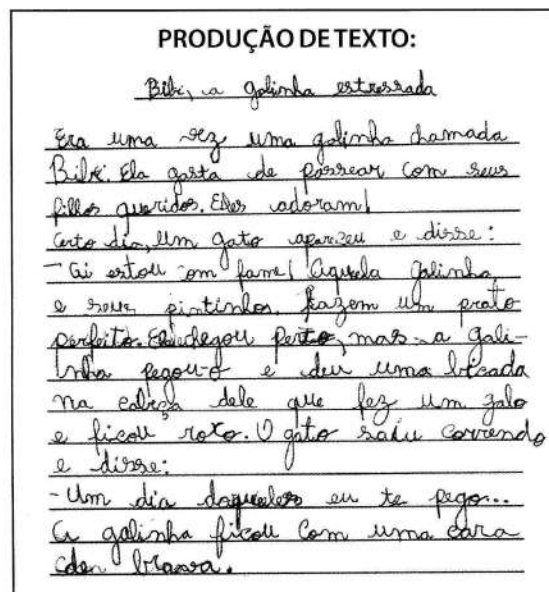 PRODUÇÃO DE TEXTO:
Bibi, a galinha estressada
Era uma vez uma galinha chamada
Bibi. Ela gosta de passear com seus
filhos queridos. Eles adoram!
Certo dia, um gato apareceu e disse:
- Ai estou om fame! Aquela galinha
e seus pintinhos, fazem um prato
perfeito. Ele chegou perto, mas a gali-
nha pegou-o e deu uma bicada
na cabeça dele que fez um galo
e ficou roxo. O gato saiu correndo
e disse:
- Um dia daqueles eu te pego...
A galinha ficou com uma cara
de brava.